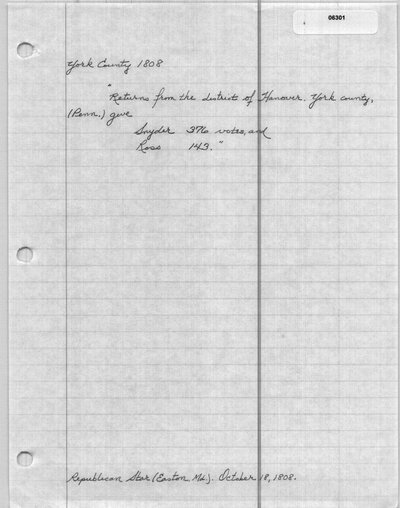 06301
York County 1808
"Returns from the district of Hanover. York county,
(Penn.) give
Snyder 376 votes, and
Ross 143."
Republican Star (Easton, Md.). October 18, 1808.